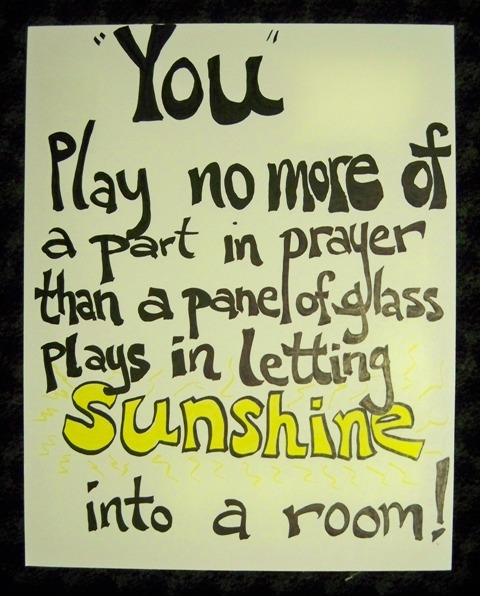 "You"
Play no more of
a part in prayer
than a panel of glass
plays in letting
Sunshine
into a room!